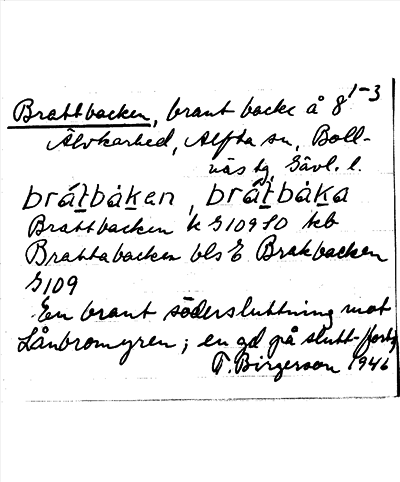 Brattbacken, brant backe å 8¹⁻³
Älvkarhed, Alfta sn, Boll-
näs tg, Gävl. l.
brátbàken, brátbàka
Brattbacken k G109SO kb
Brattabacken bls E Brakbacken
G109
En brant södersluttning mot
Lånbromyren; en gd på slutt-
T. Birgerson 1946